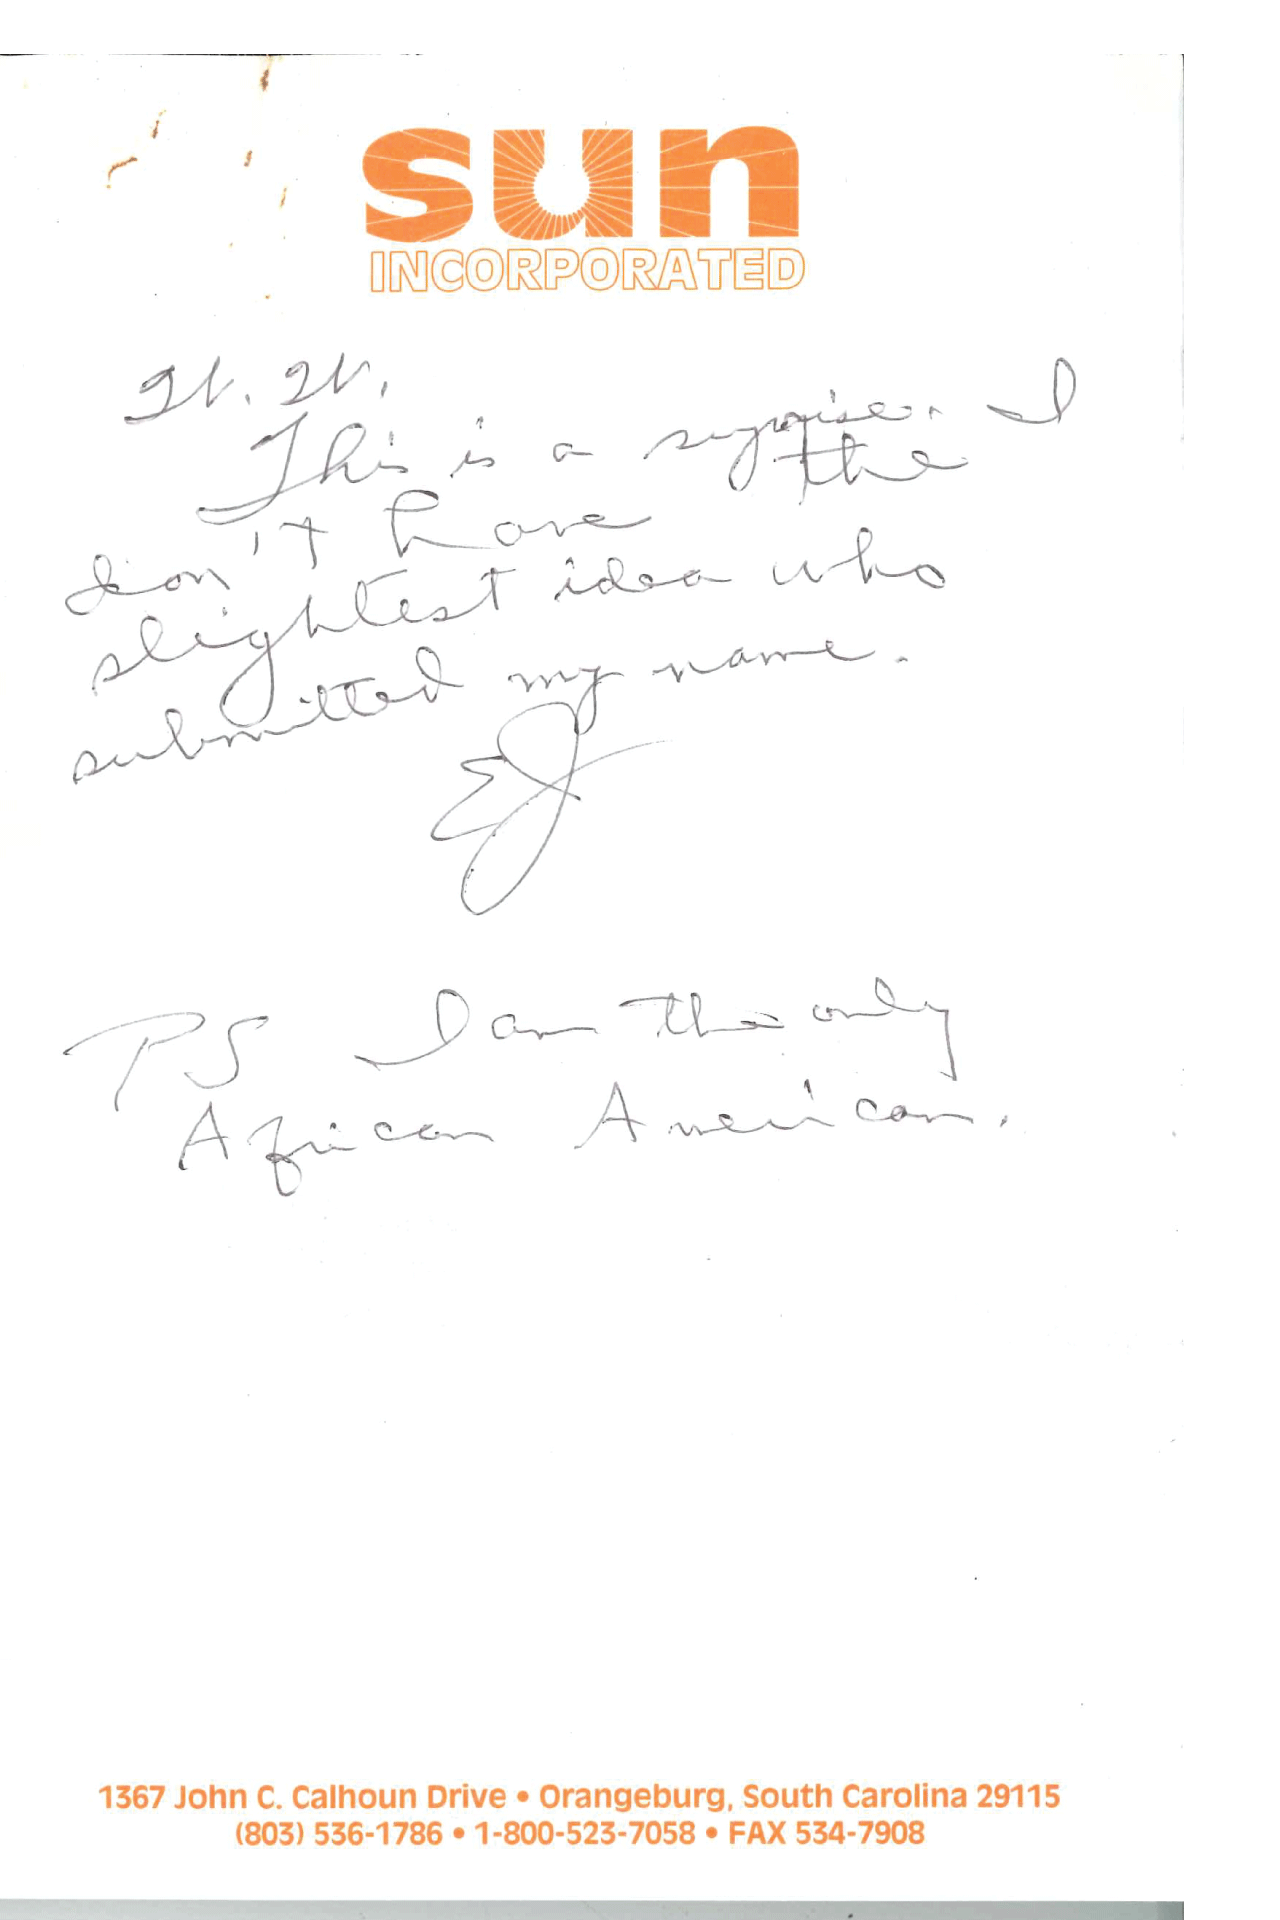 sun
INCORPORATED
This is a surprise. I
don't have the
slightest idea who
submitted my name.
EJ
PS I am the only
African American.
1367 John C. Calhoun Drive • Orangeburg, South Carolina 29115
(803) 536-1786 • 1-800-523-7058 • FAX 534-7908